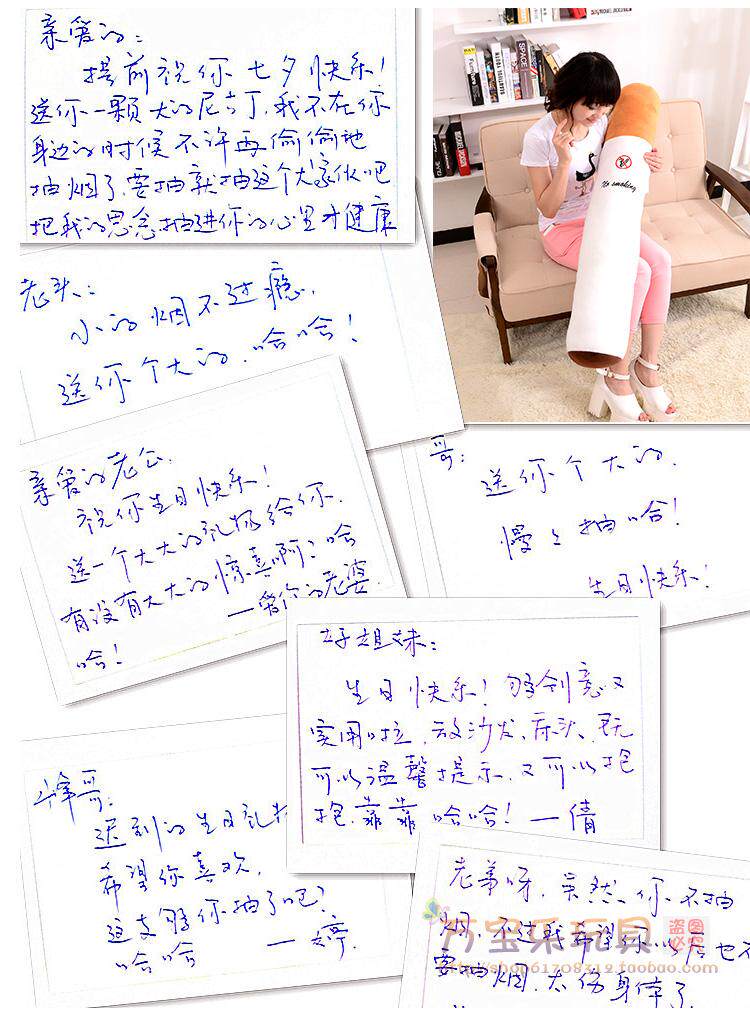 亲爱的:
提前祝你七夕快乐!
送你一颗大的尼古丁,我不在你
身边的时候不许再偷偷地
抽烟了,要抽就抽这个大家伙吧
把我的思念抽进你的心里才健康
No smoking
SPACE
老头:
小的烟不过瘾,
送你个大的,哈哈!
亲爱的老公,
祝你生日快乐!
送一个大大的礼物给你,
有没有大大的惊喜啊?哈
哈!
—爱你的老婆
哥:
送你个大的,
慢慢抽哈!
生日快乐!
好姐妹:
生日快乐!够创意又
实用啦,放沙发、床头,既
可以温馨提示,又可以抱
抱、靠靠 哈哈!—倩
峰哥:
迟到的生日礼物
希望你喜欢,
这支够你抽了吧?
哈哈 —婷
老弟呀,虽然你不抽
烟,不过我希望你以后也不
要抽烟,太伤身体了
万宝乐玩具
盗图必究
http://shop61708312.taobao.com